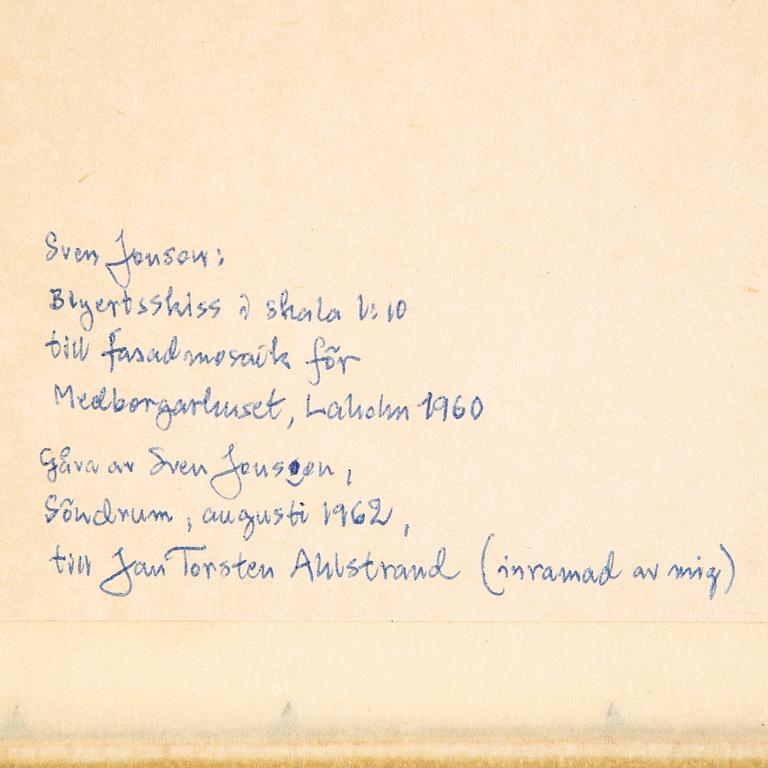 Sven Jonson:
Blyertsskiss i skala 1:10
till fasadmosaik för
Medborgarhuset, Laholm 1960
Gåva av Sven Jonson,
Söndrum, augusti 1962,
till Jan Torsten Ahlstrand (inramad av mig)